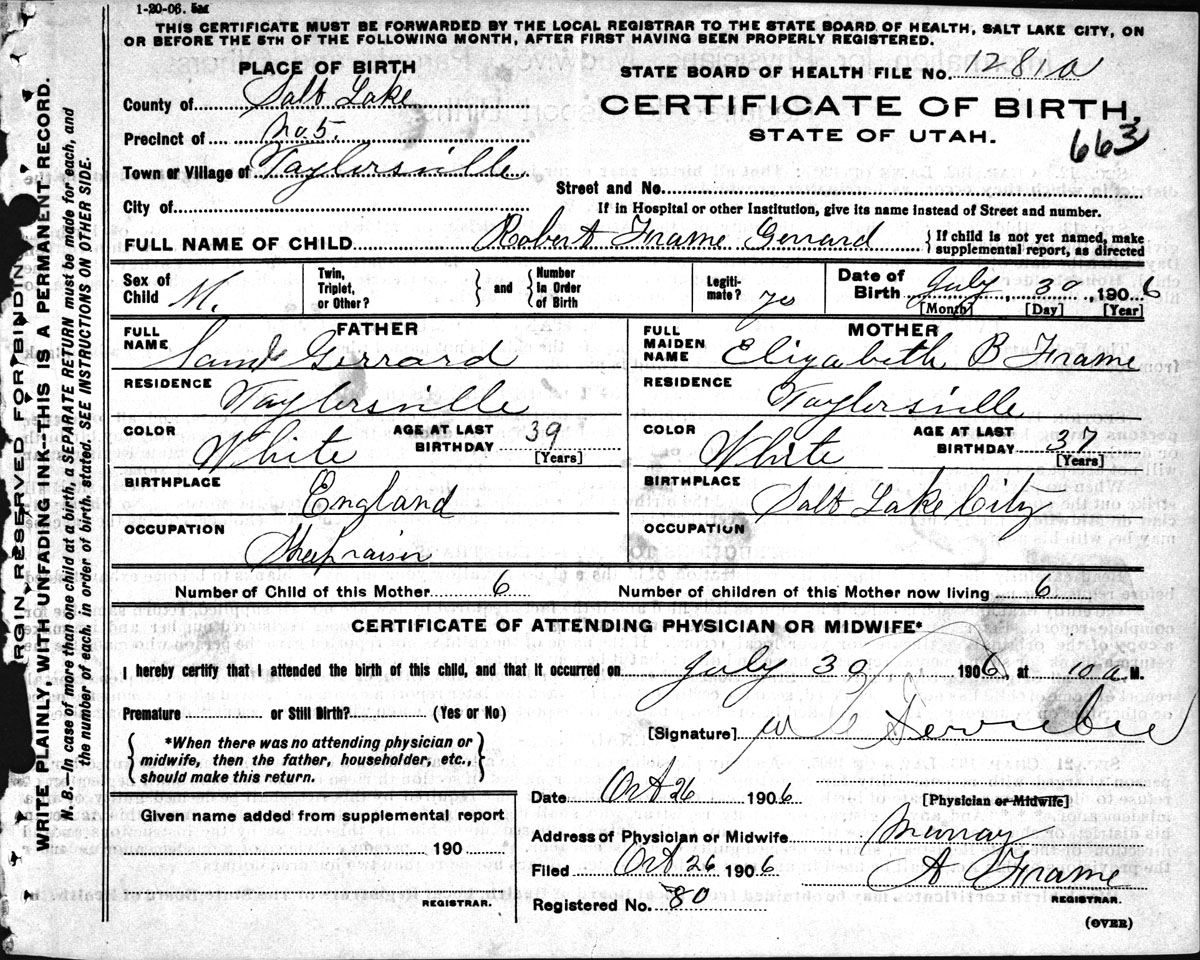 1-20-06. 5M
THIS CERTIFICATE MUST BE FORWARDED BY THE LOCAL REGISTRAR TO THE STATE BOARD OF HEALTH, SALT LAKE CITY, ON
OR BEFORE THE 5TH OF THE FOLLOWING MONTH, AFTER FIRST HAVING BEEN PROPERLY REGISTERED.
PLACE OF BIRTH
STATE BOARD OF HEALTH FILE No.
County of Salt Lake
CERTIFICATE OF BIRTH,
Precinct of No. 5.
STATE OF UTAH.
663
Town or Village of Taylorsville
Street and No.
City of
If in Hospital or other Institution, give its name instead of Street and number.
FULL NAME OF CHILD Robert Frame Gerrard {If child is not yet named, make supplemental report, as directed
Sex of Child M. Twin, Triplet, or Other? } and { Number In Order of Birth Legiti- mate? Date of Birth July, 30, 1906
[Month] [Day] [Year]
FATHER
FULL NAME Saml Gerrard
RESIDENCE Taylersville
COLOR White AGE AT LAST BIRTHDAY 39 [Years]
BIRTHPLACE England
OCCUPATION Sheep raiser
MOTHER
FULL MAIDEN NAME Elizabeth B Frame
RESIDENCE Taylersville
COLOR White AGE AT LAST BIRTHDAY 37 [Years]
BIRTHPLACE Salt Lake City
OCCUPATION
Number of Child of this Mother 6 Number of children of this Mother now living 6
CERTIFICATE OF ATTENDING PHYSICIAN OR MIDWIFE*
I hereby certify that I attended the birth of this child, and that it occurred on July 30 1906, at 10 a. M.
Premature or Still Birth? (Yes or No)
[Signature]
{*When there was no attending physician or
midwife, then the father, householder, etc.,
should make this return.}
Date Oct 26 1906 [Physician or Midwife]
Given name added from supplemental report
190
REGISTRAR.
Address of Physician or Midwife Murray
Filed Oct 26 1906 A Frame
REGISTRAR.
Registered No. 80
(OVER)
MARGIN RESERVED FOR BINDING
WRITE PLAINLY WITH UNFADING INK-THIS IS A PERMANENT RECORD.
N. B.-In case of more than one child at a birth, a SEPARATE RETURN must be made for each, and
the number of each, in order of birth, stated. SEE INSTRUCTIONS ON OTHER SIDE.